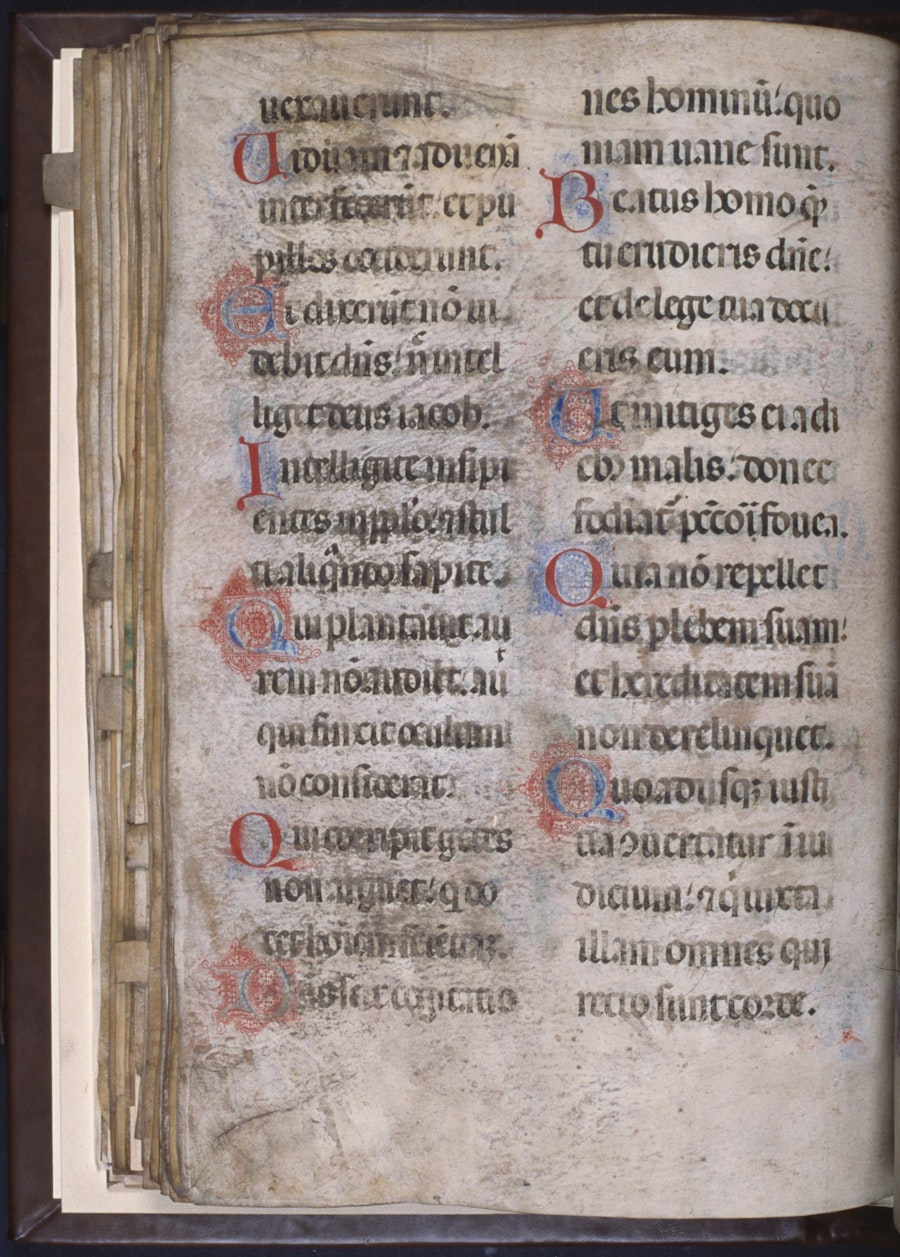 uexauerunt.
Uiduam ⁊ aduenā
interfecerūt: et pu
pillos occiderunt.
Et dixerūt nō ui
debit dn̄s: n̄ intel
liget deus iacob.
Intelligite insipi
entes in pp̄lo: ⁊ stul
ti aliqn̄do sapite.
Qui plantauit au
rem nō audiet: aut
qui finxit oculum
nō considerat.
Qui corripit gētes
non arguet: q̄ do
cet hoīem sciētiaȝ.
Dn̄s scit cogitatio
nes hominū: quo
niam uane sunt.
Beatus homo quē
tu erudieris dn̄e:
et de lege tua docu
eris eum.
Ut mitiges ei a di
ebȝ malis: donec
fodiat᷑ pc̄cōi fouea.
Quia nō repellet
dn̄s plebem suam:
et hereditatem suā
non derelinquet.
Quoadusqȝ iusti
tia ꝯuertatur in iu
dicium: ⁊ qui iuxta
illam omnes qui
recto sunt corde.